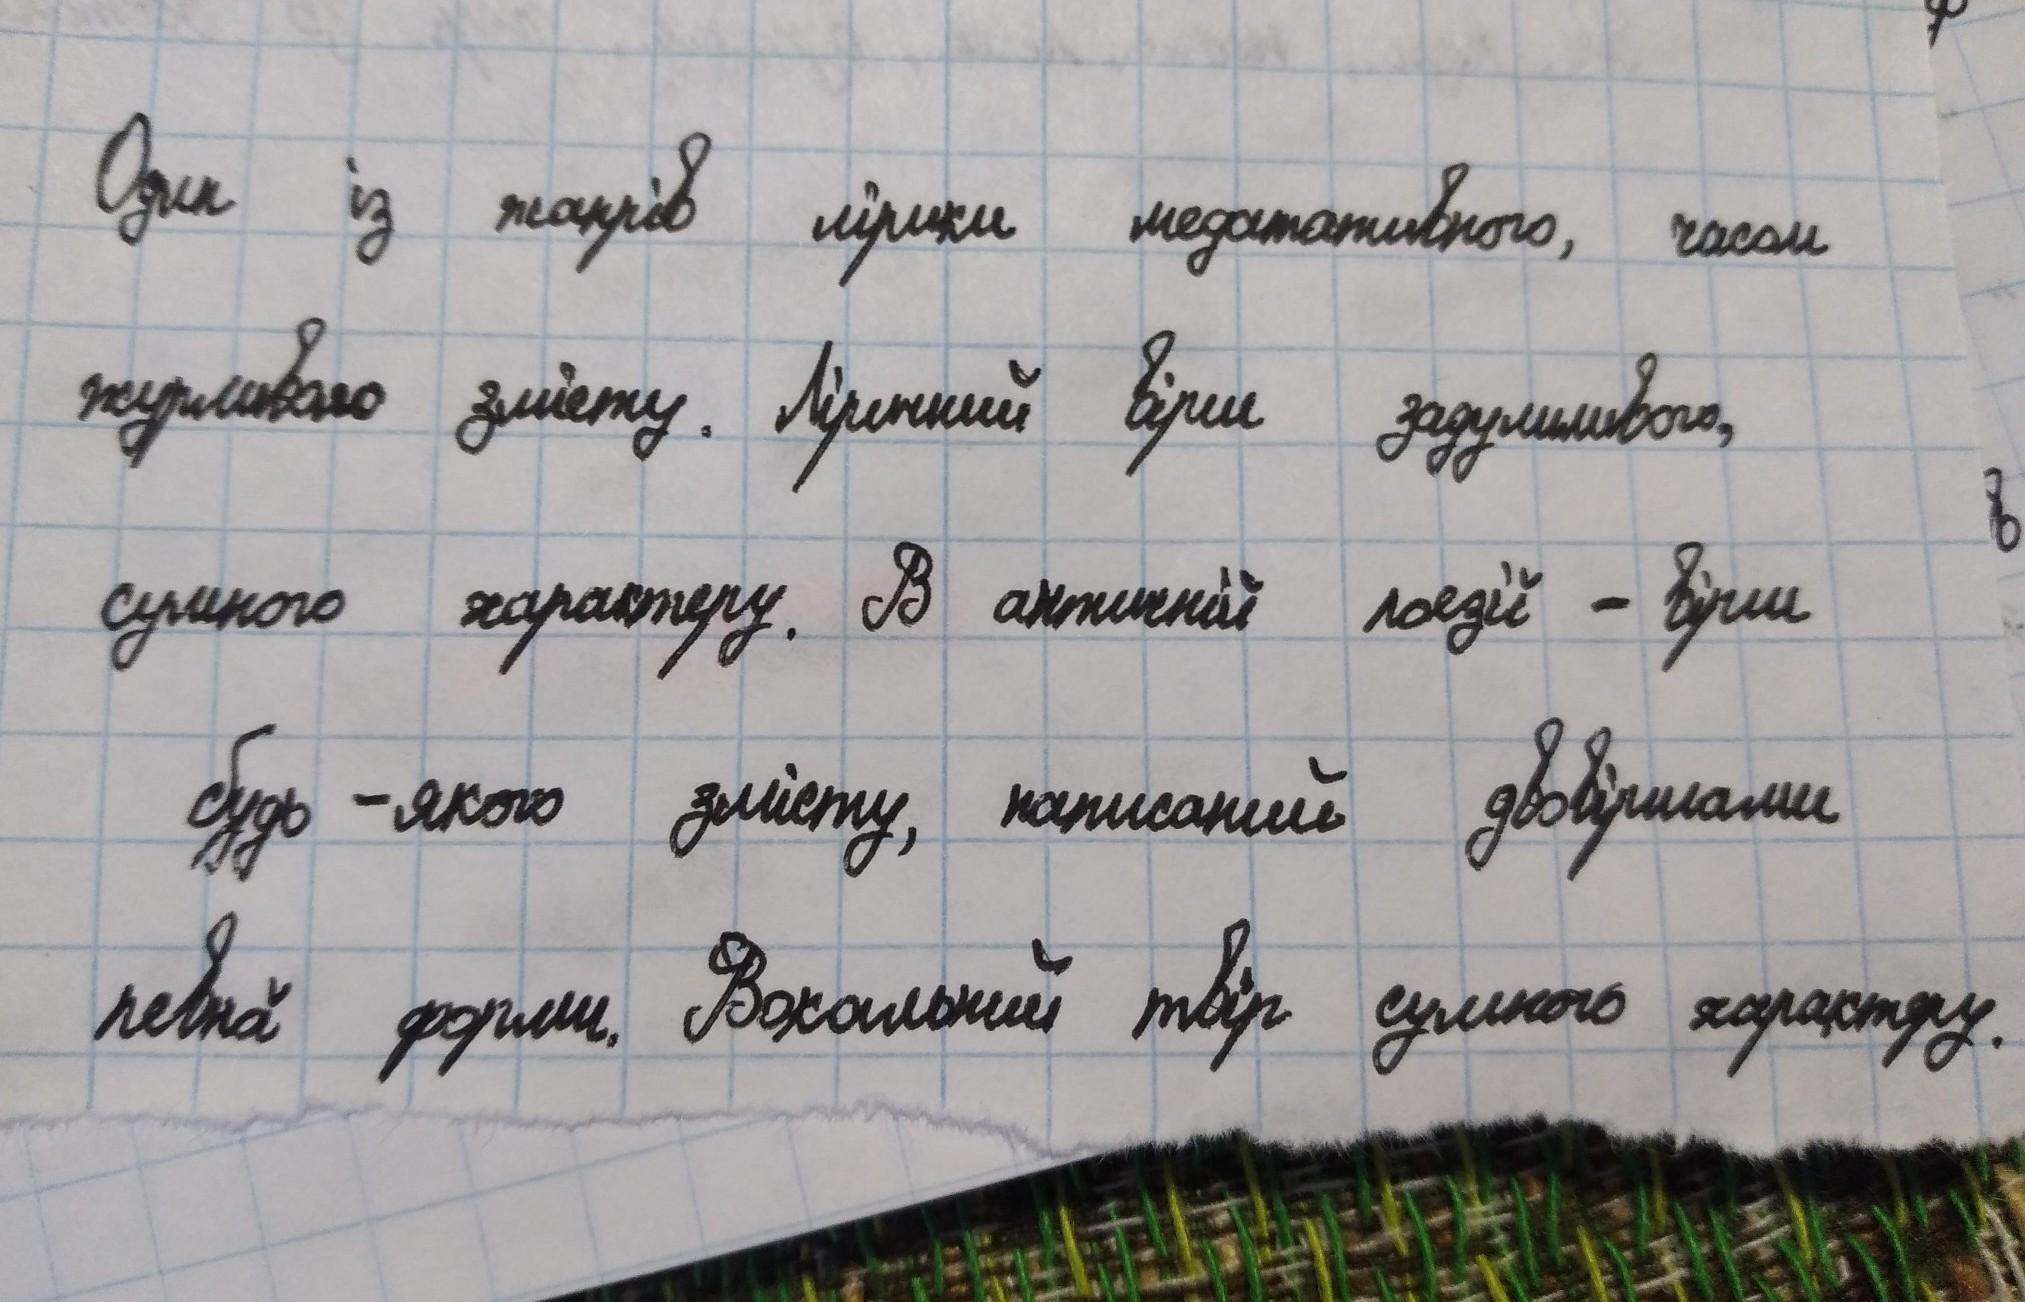 Один із жанрів лірики медататативного, часом
журливого змісту. Ліричний вірш задумливого,
сумного характеру. В античній поезій - вірш
будь -якого змісту, написаний двовіршами
певнай форми. Вокальний твір сумного характеру.